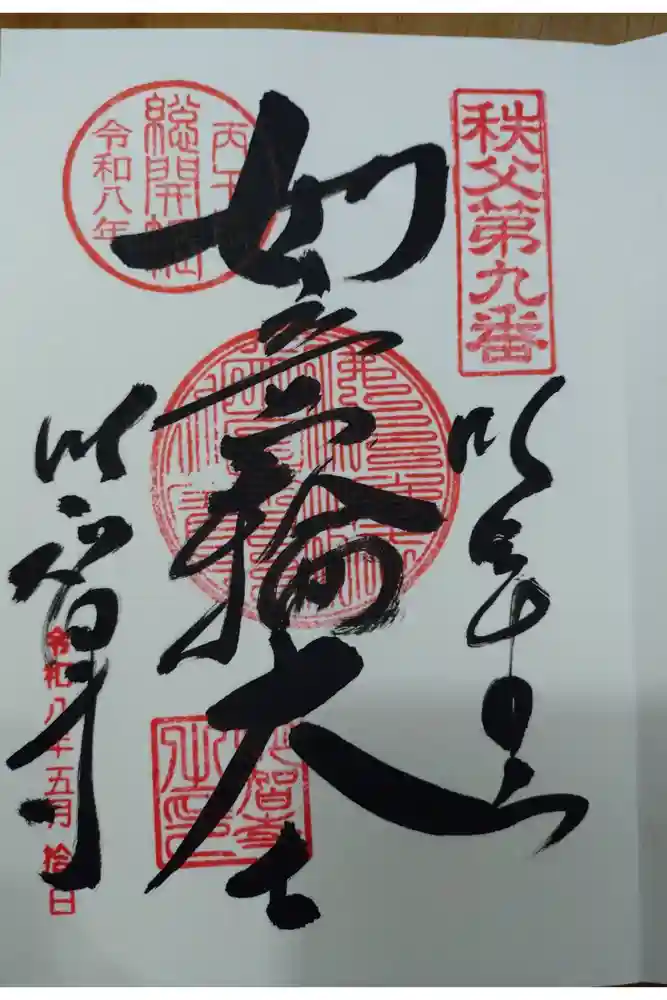 秩父第九番
明星山
丙午
総開帳
令和八年
如意輪大士
明智寺
令和八年五月拾日